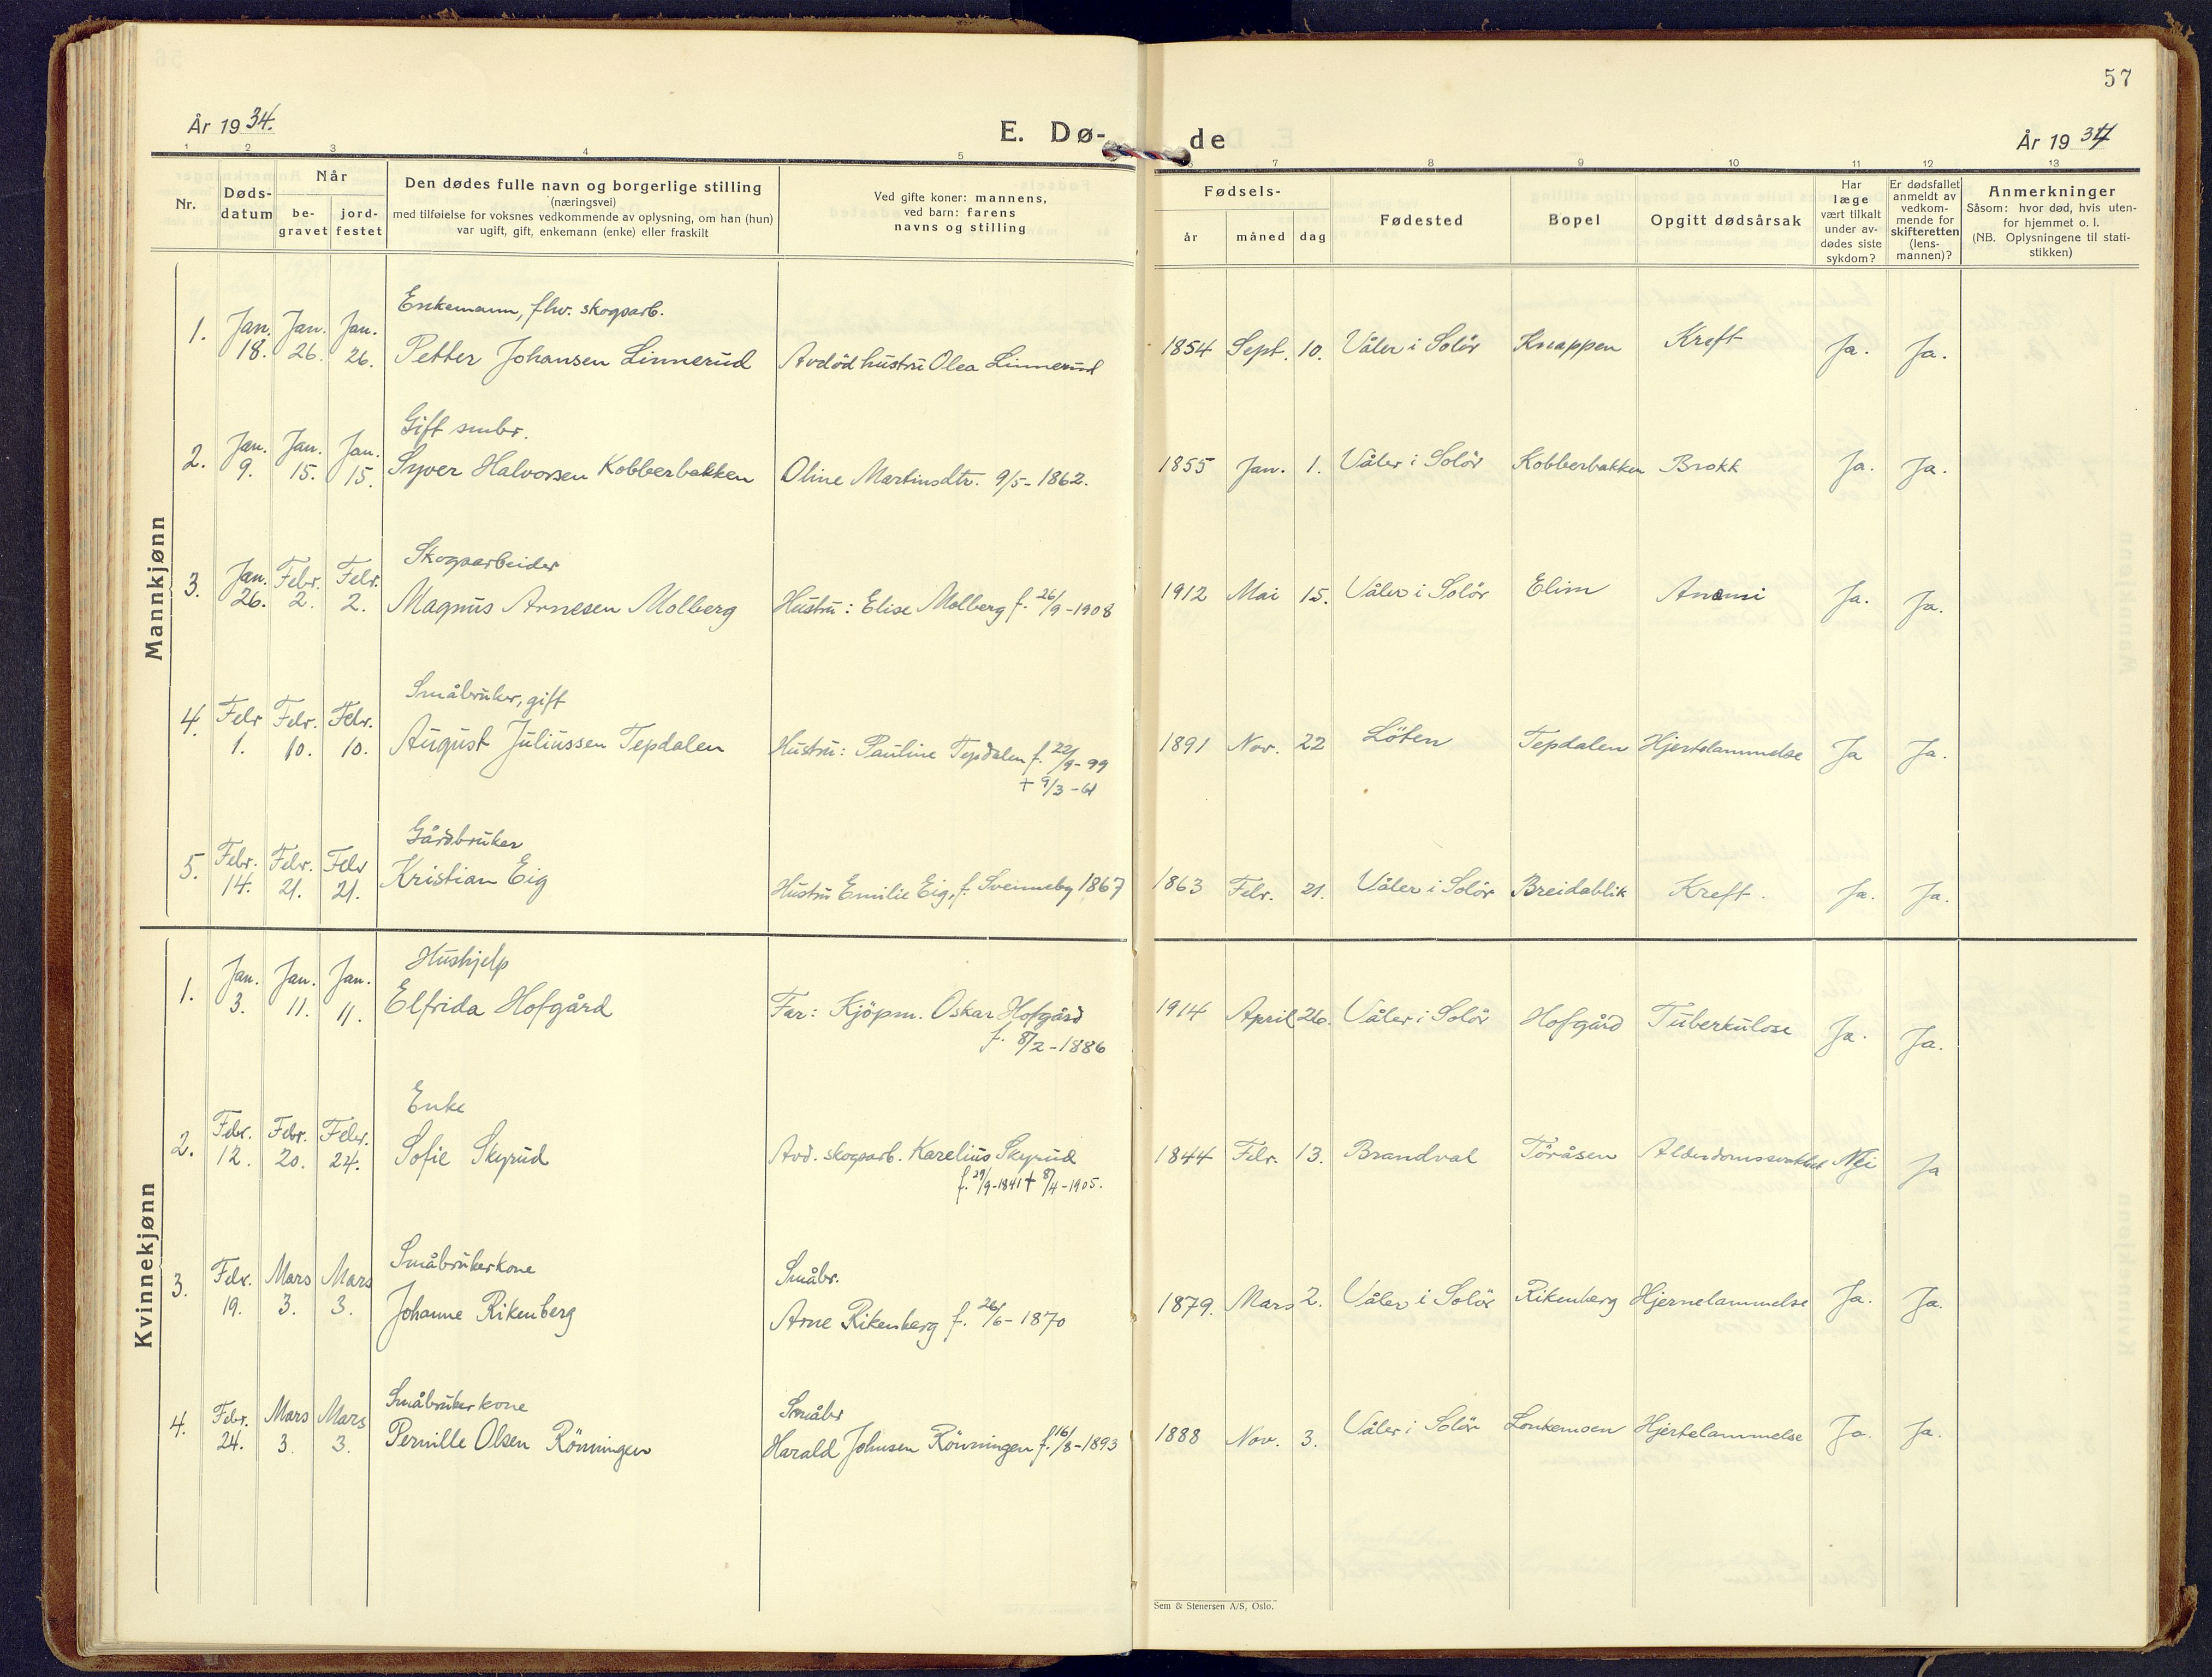 57
År 1934.
E. Dø- de
År 1934
1 2 3 4 5 7 8 9 10 11 12 13
Nr.
Døds-
datum
Når
be-
gravet
jord-
festet
Den dødes fulle navn og borgerlige stilling
(næringsvei)
med tilføielse for voksnes vedkommende av oplysning, om han (hun)
var ugift, gift, enkemann (enke) eller fraskilt
Ved gifte koner: mannens,
ved barn: farens
navns og stilling
Fødsels-
år måned dag
Fødested
Bopel
Opgitt dødsårsak
Har
læge
vært tilkalt
under av-
dødes siste
sykdom?
Er dødsfallet
anmeldt av
vedkom-
mende for
skifteretten
(lens-
mannen)?
Anmerkninger
Såsom: hvor død, hvis uten-
for hjemmet o. l.
(NB. Oplysningene til stati-
stikken)
Mannkjønn
Enkemann, fhv. skogsarb.
1. Jan. 18. Jan. 26. Jan. 26. Petter Johansen Linnerud Avdöd hustru Olea Linnerud 1854 Sept. 10. Våler i Solör Knappen Kreft Ja. Ja.
Gift smbr.
2. Jan. 9. Jan. 15. Jan. 15. Syver Halvorsen Kobberbakken Oline Martinsdtr. 9/5-1862. 1855 Jan. 1. Våler i Solör Kobberbakken Brokk Ja. Ja.
Skogsarbeider
3. Jan. 26. Febr. 2. Febr. 2. Magnus Arnesen Molberg Hustru: Elise Molberg f. 26/9-1908 1912 Mai 15. Våler i Solör Elim Anemi Ja. Ja.
Småbruker, gift
4. Febr 1. Febr. 10. Febr. 10. August Juliussen Tepdalen Hustru: Pauline Tepdalen f. 22/9-99 1891 Nov. 22 Löten Tepdalen Hjertelammelse Ja Ja.
+ 9/3-61
Gårdbruker
5. Febr. 14. Febr. 21. Febr 21. Kristian Eig Hustru Emilie Eig, f. Sveinneby 1867 1863 Febr. 21. Våler i Solör Breidablik Kreft. Ja. Ja.
Kvinnekjønn
Hushjelp
1. Jan. 3. Jan. 11. Jan. 11. Elfrida Hofgård Far: Kjöpm. Oskar Hofgård 1914 April 26. Våler i Solör Hofgård Tuberkulose Ja. Ja.
f. 8/2-1886
Enke
2. Febr. 12. Febr. 20. Febr. 24. Sofie Skyrud Avd. skogsarb. Karelius Skyrud 1844 Febr. 13. Brandval Töråsen Alderdomssvakhet Nei Ja
f. 29/9-1841 + 8/4-1905.
Småbrukerkone Småbr.
3. Febr. 19. Mars 3. Mars 3. Johanne Rikenberg Arne Rikenberg f. 26/6-1870 1879. Mars 2. Våler i Solör Rikenberg Hjernelammelse Ja. Ja.
Småbrukerkone Småbr
4. Febr. 24. Mars 3. Mars 3. Pernille Olsen Rönningen Harald Johnsen Rönningen f. 16/8-1893 1888 Nov. 3. Våler i Solör Lonkemoen Hjertelammelse Ja. Ja.
Sem & Stenersen A/S, Oslo.